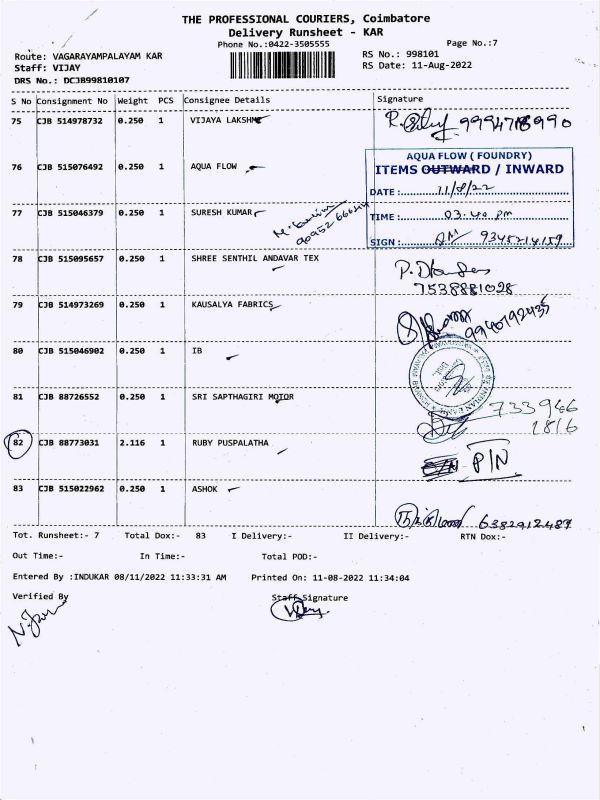 THE PROFESSIONAL COURIERS, Coimbatore
Delivery Runsheet - KAR
Phone No.:0422-3505555
Page No.:7
Route: VAGARAYAMPALAYAM KAR
RS No.: 998101
Staff: VIJAY
RS Date: 11-Aug-2022
DRS No.: DCJB99810107
S No Consignment No Weight PCS Consignee Details Signature
75 CJB 514978732 0.250 1 VIJAYA LAKSHMI
9994718990
76 CJB 515076492 0.250 1 AQUA FLOW
AQUA FLOW ( FOUNDRY)
ITEMS OUTWARD / INWARD
DATE : 11/8/22
77 CJB 515046379 0.250 1 SURESH KUMAR
TIME : 03.40 pm
SIGN : 9345214159
78 CJB 515095657 0.250 1 SHREE SENTHIL ANDAVAR TEX
7538881028
79 CJB 514973269 0.250 1 KAUSALYA FABRICS
9940792435
80 CJB 515046902 0.250 1 IB
INDIAN BANK
81 CJB 88726552 0.250 1 SRI SAPTHAGIRI MOTOR
733946
1816
82 CJB 88773031 2.116 1 RUBY PUSPALATHA
P/N
83 CJB 515022962 0.250 1 ASHOK
6382912487
Tot. Runsheet:- 7 Total Dox:- 83 I Delivery:- II Delivery:- RTN Dox:-
Out Time:- In Time:- Total POD:-
Entered By :INDUKAR 08/11/2022 11:33:31 AM Printed On: 11-08-2022 11:34:04
Verified By Staff Signature